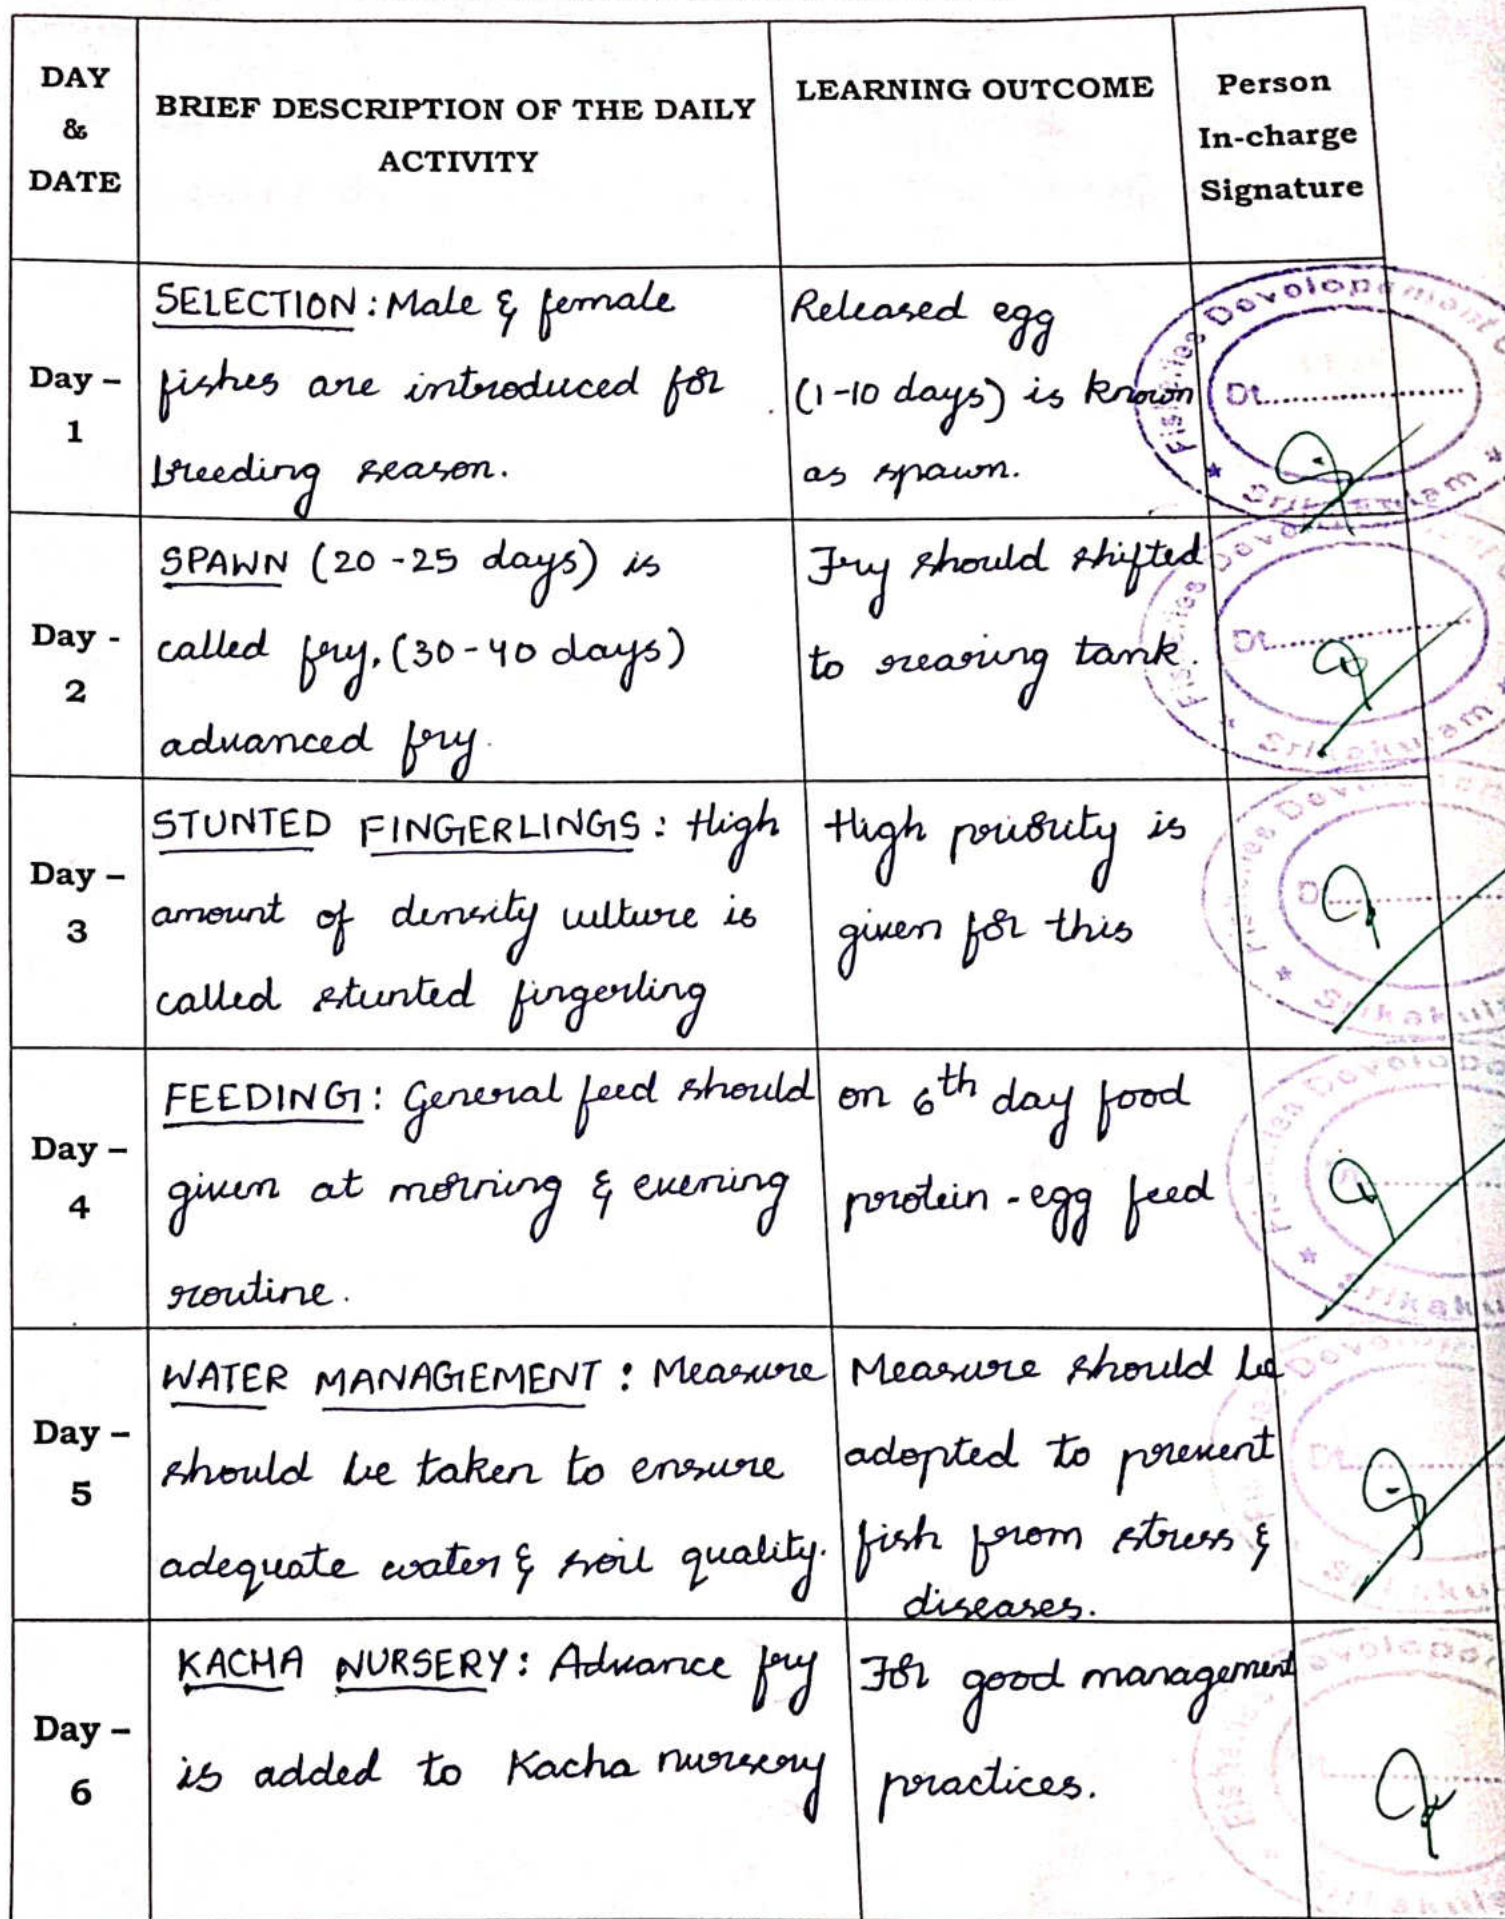 DAY
&
DATE
BRIEF DESCRIPTION OF THE DAILY
ACTIVITY
LEARNING OUTCOME
Person
In-charge
Signature
Day –
1
SELECTION : Male & female
fishes are introduced for
breeding season.
Released egg
(1-10 days) is known
as spawn.
Fisheries Development
Dt..............
Srikakulam
Day -
2
SPAWN (20-25 days) is
called fry, (30-40 days)
advanced fry.
Fry should shifted
to rearing tank.
Dt..............
Srikakulam
Day –
3
STUNTED FINGERLINGS : High
amount of density culture is
called stunted fingerling
High priority is
given for this
Day –
4
FEEDING : General feed should
given at morning & evening
routine.
on 6th day food
protein - egg feed
Day –
5
WATER MANAGEMENT : Measure
should be taken to ensure
adequate water & soil quality.
Measure should be
adopted to prevent
fish from stress &
diseases.
Dt..............
Day –
6
KACHA NURSERY : Advance fry
is added to Kacha nursery
For good management
practices.